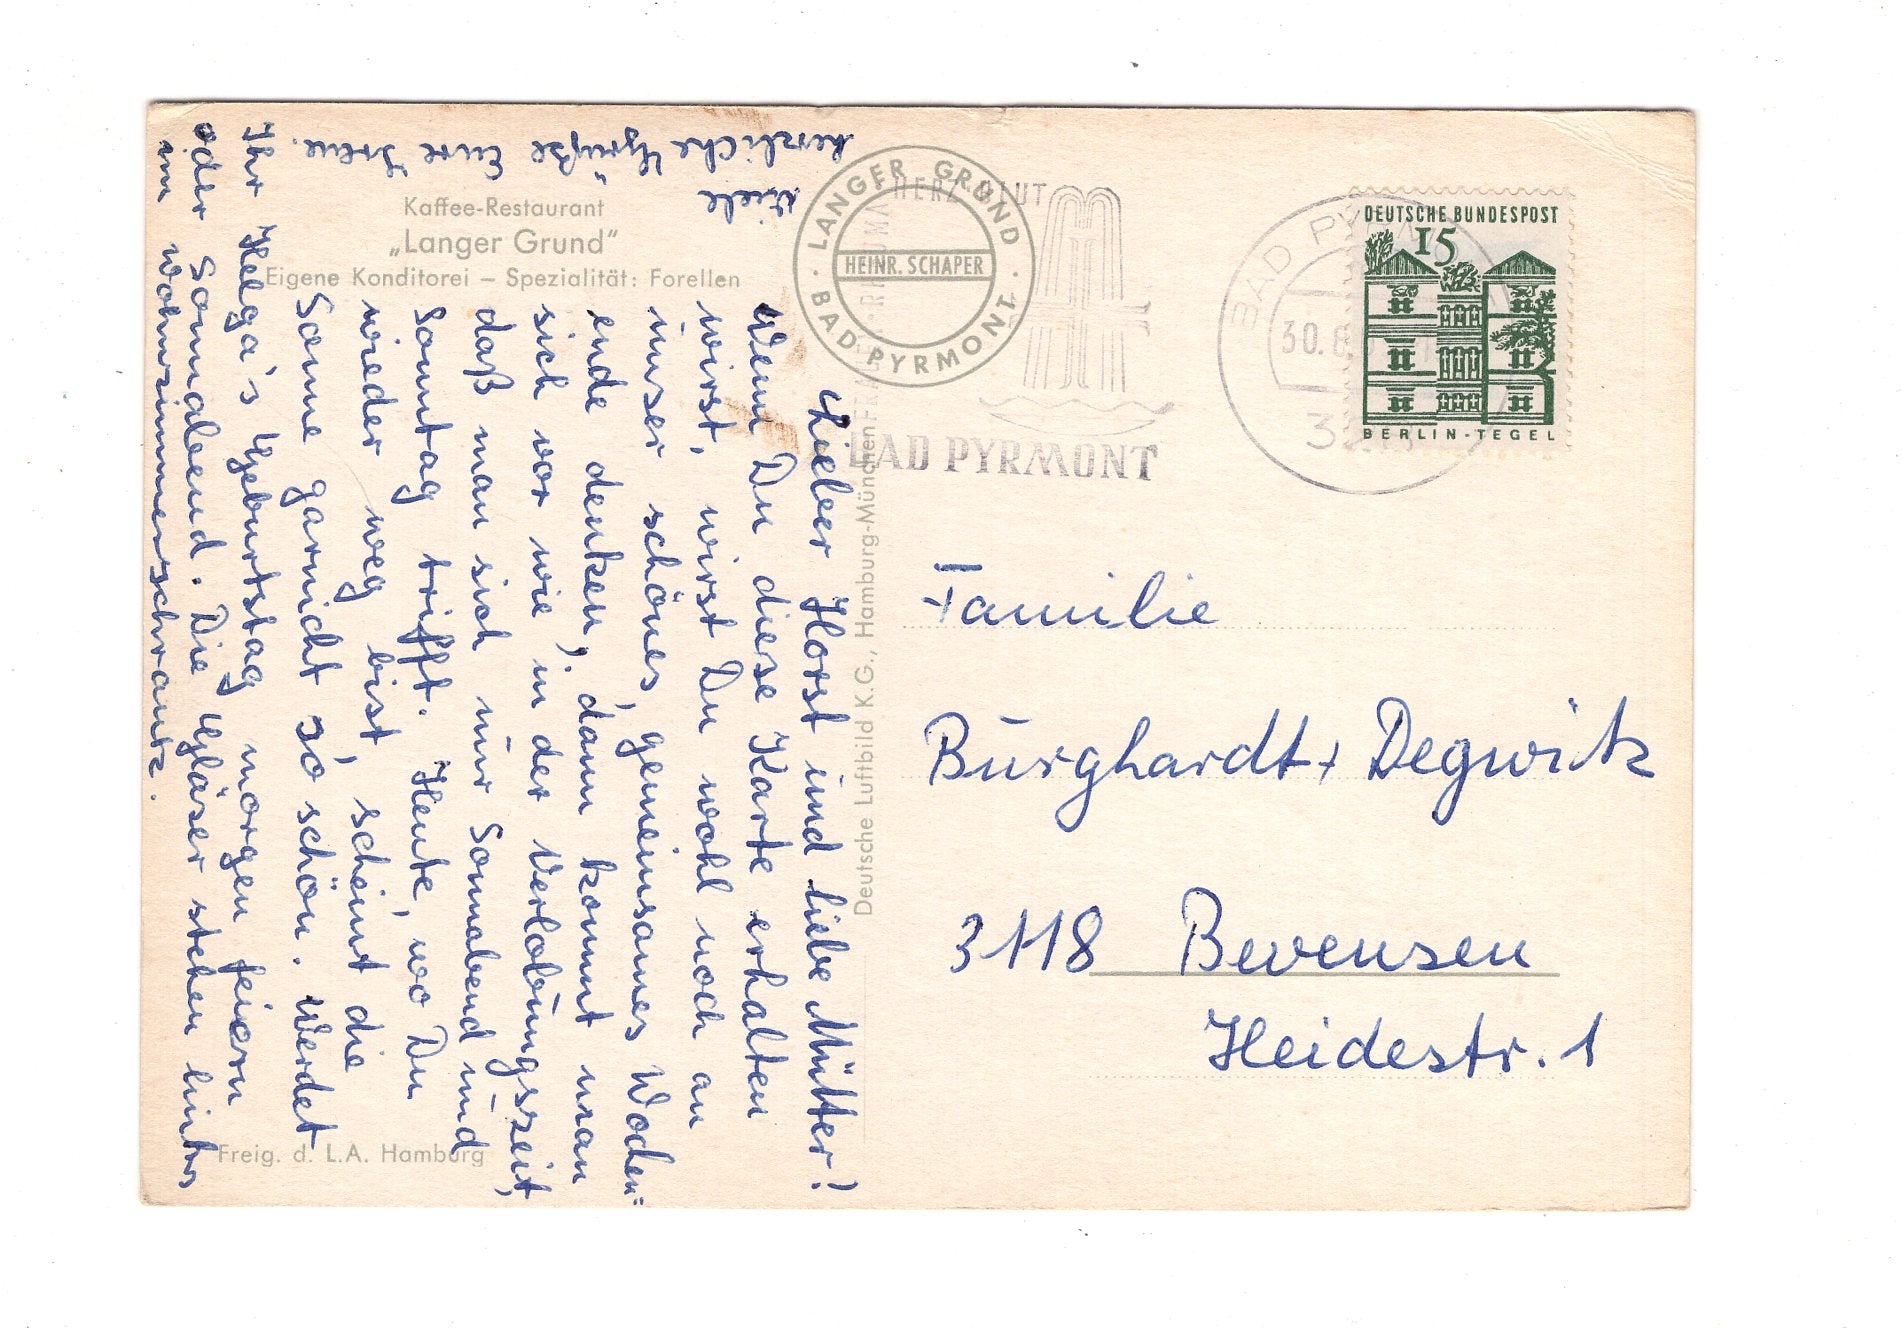 Kaffee-Restaurant
„Langer Grund“
Eigene Konditorei – Spezialität: Forellen
LANGER GRUND
HEINR. SCHAPER
· BAD PYRMONT ·
HERZ BLUT
BAD PYRMONT
BAD PYRMONT
30.8.
DEUTSCHE BUNDESPOST
15
BERLIN-TEGEL
Lieber Horst und liebe Mutter!
Wenn Du diese Karte erhalten
wirst, wirst Du wohl noch an
unser schönes, gemeinsames Wochen=
ende denken, dann kommt man
sich vor wie in der Verlobungszeit,
daß man sich nur Sonnabend und
Sonntag trifft. Heute, wo Du
wieder weg bist, scheint die
Sonne garnicht so schön. Werdet
Ihr Helga's Geburtstag morgen feiern
oder Sonnabend. Die Gläser stehen hinten
im Wohnzimmerschrank.
Viele
herzliche Grüße Eure Irene.
Deutsche Luftbild K.G., Hamburg-München
Freig. d. L.A. Hamburg
Familie
Burghardt + Degwitz
3118 Bevensen
Heidestr. 1